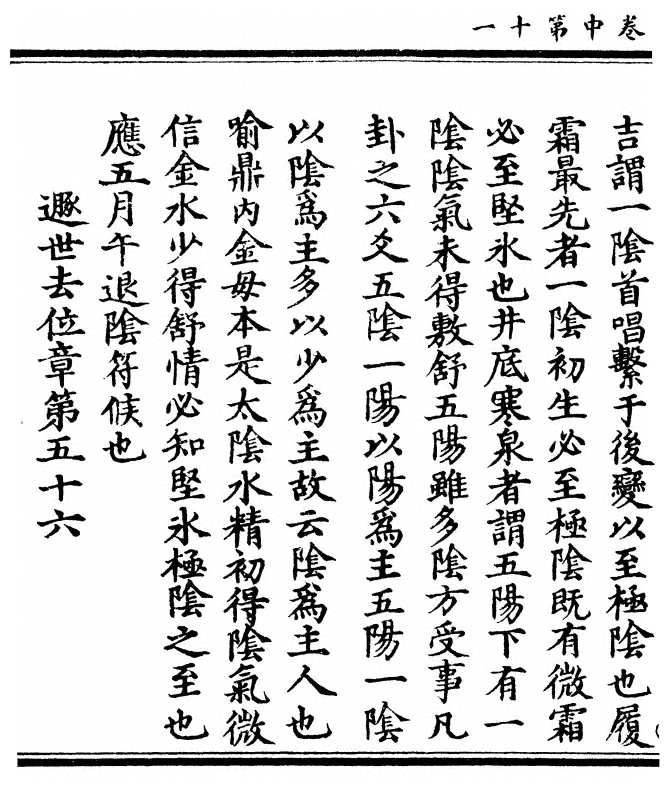 卷中第十一
吉謂一陰首唱繫于後變以至極陰也履
霜最先者一陰初生必至極陰既有微霜
必至堅氷也井底寒泉者謂五陽下有一
陰陰氣未得敷舒五陽雖多陰方受事凡
卦之六爻五陰一陽以陽為主五陽一陰
以陰為主多以少為主故云陰為主人也
喻鼎內金母本是太陰水精初得陰氣微
信金水少得舒情必知堅氷極陰之至也
應五月午退陰符候也
遯世去位章第五十六